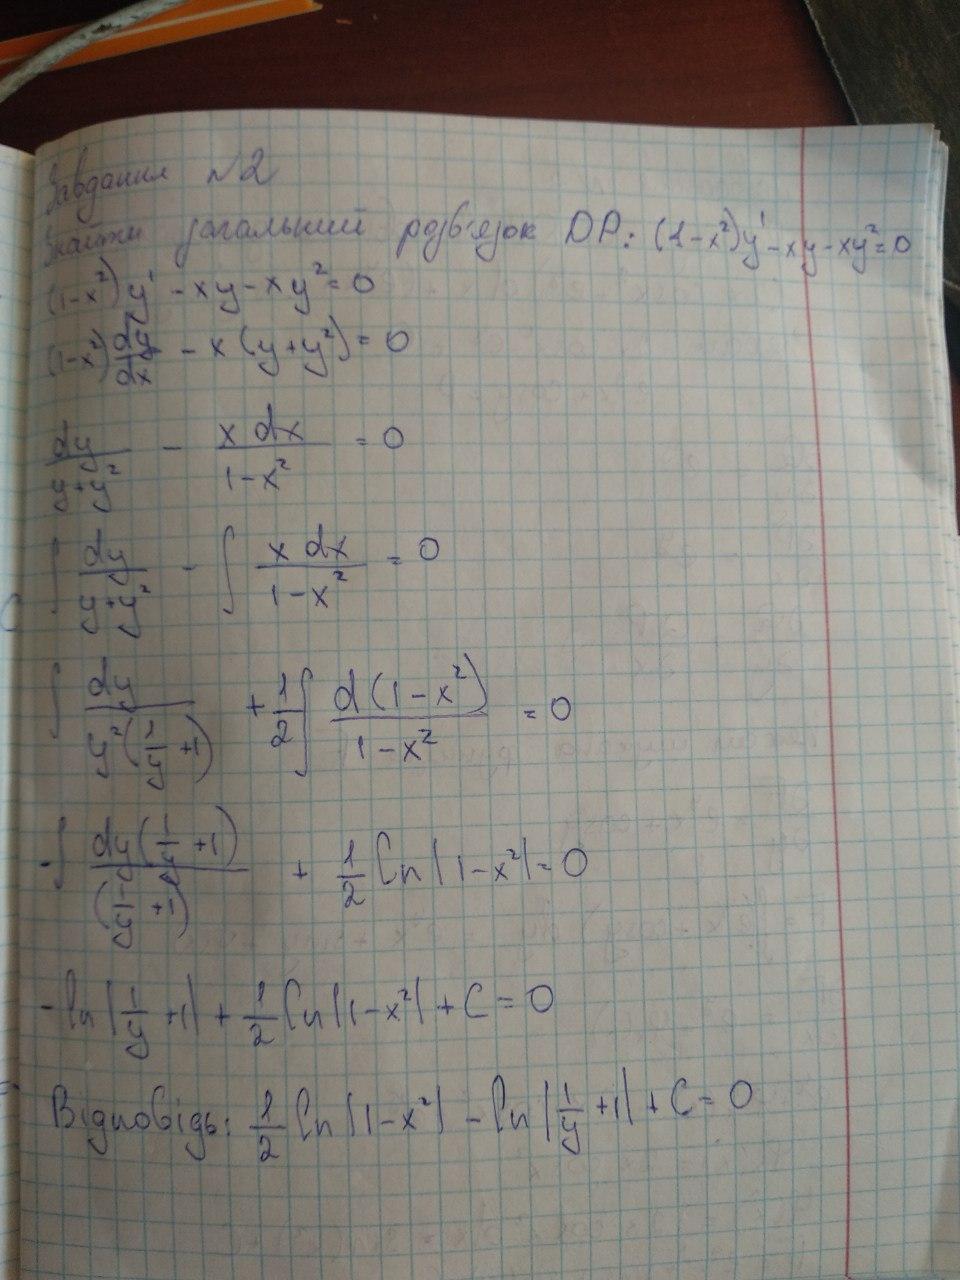 Завдання №2
Знайти загальний розв'язок DР: (1-x²)y' - xy - xy² = 0
(1-x²)y' - xy - xy² = 0
(1-x²) dy/dx - x(y+y²) = 0
dy/(y+y²) - x dx/(1-x²) = 0
∫ dy/(y+y²) - ∫ x dx/(1-x²) = 0
∫ dy/(y²(1/y +1)) + 1/2 ∫ d(1-x²)/(1-x²) = 0
-∫ dy(1/y +1)/(1/y +1) + 1/2 ln|1-x²| = 0
-ln|1/y +1| + 1/2 ln|1-x²| + C = 0
Відповідь: 1/2 ln|1-x²| - ln|1/y +1| + C = 0